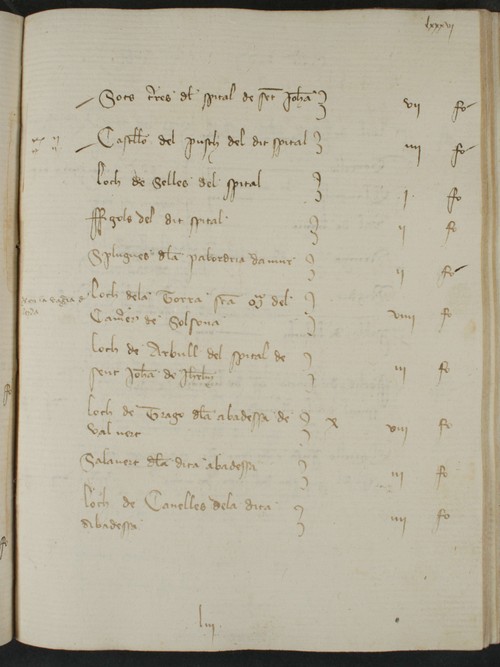 lxxxvi
Sots tres dl spital de sct Joha vii fo
Castllo del pusch del dit spital iiii fo
loch de Selles del spital i fo
ffigols del dit spital ii fo
Splugues dla pabordria damur ii fo
loch dela Torra sea del
Camer de Solsona viiii fo
loch de Arbull del spital de
sent Joha de iii fo
loch de Trago dla abadessa de
valvert x viii fo
Salavert dla dita abadessa iii fo
loch de Canelles dela dita
abadessa iiii fo
liii